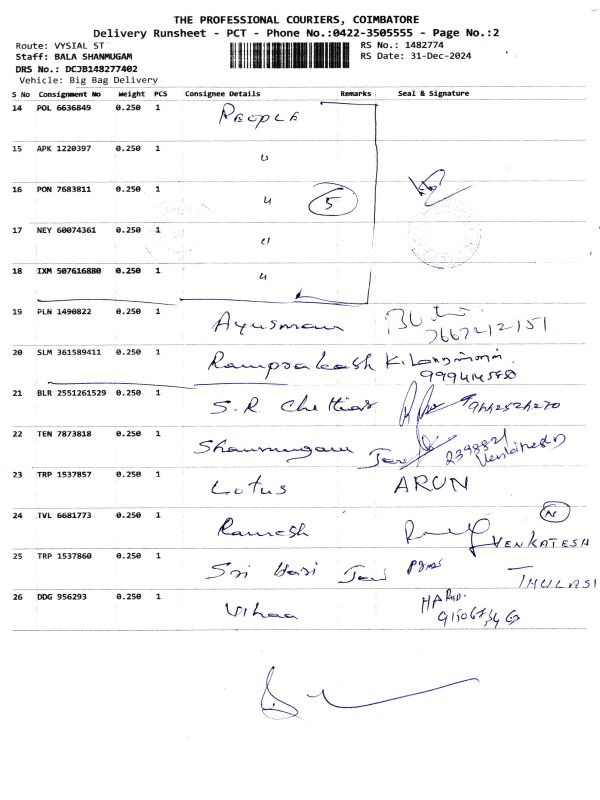 THE PROFESSIONAL COURIERS, COIMBATORE
Delivery Runsheet - PCT - Phone No.:0422-3505555 - Page No.:2
Route: VYSIAL ST RS No.: 1482774
Staff: BALA SHANMUGAM RS Date: 31-Dec-2024
DRS No.: DCJB148277402
Vehicle: Big Bag Delivery
S No Consignment No Weight PCS Consignee Details Remarks Seal & Signature
14 POL 6636849 0.250 1 PEOPLE
15 APK 1220397 0.250 1 "
16 PON 7683811 0.250 1 " 5
17 NEY 60074361 0.250 1 "
18 IXM 507616880 0.250 1 "
19 PLN 1490822 0.250 1 7667212151
20 SLM 361589411 0.250 1 Ramprakash
21 BLR 2551261529 0.250 1 S.R. Chettiar 9442524270
22 TEN 7873818 0.250 1 Shanmugam
23 TRP 1537857 0.250 1 Lotus ARUN
24 TVL 6681773 0.250 1 Ramesh VENKATESH
25 TRP 1537860 0.250 1 Sri Hari THULASI
26 DDG 956293 0.250 1 Vihaa